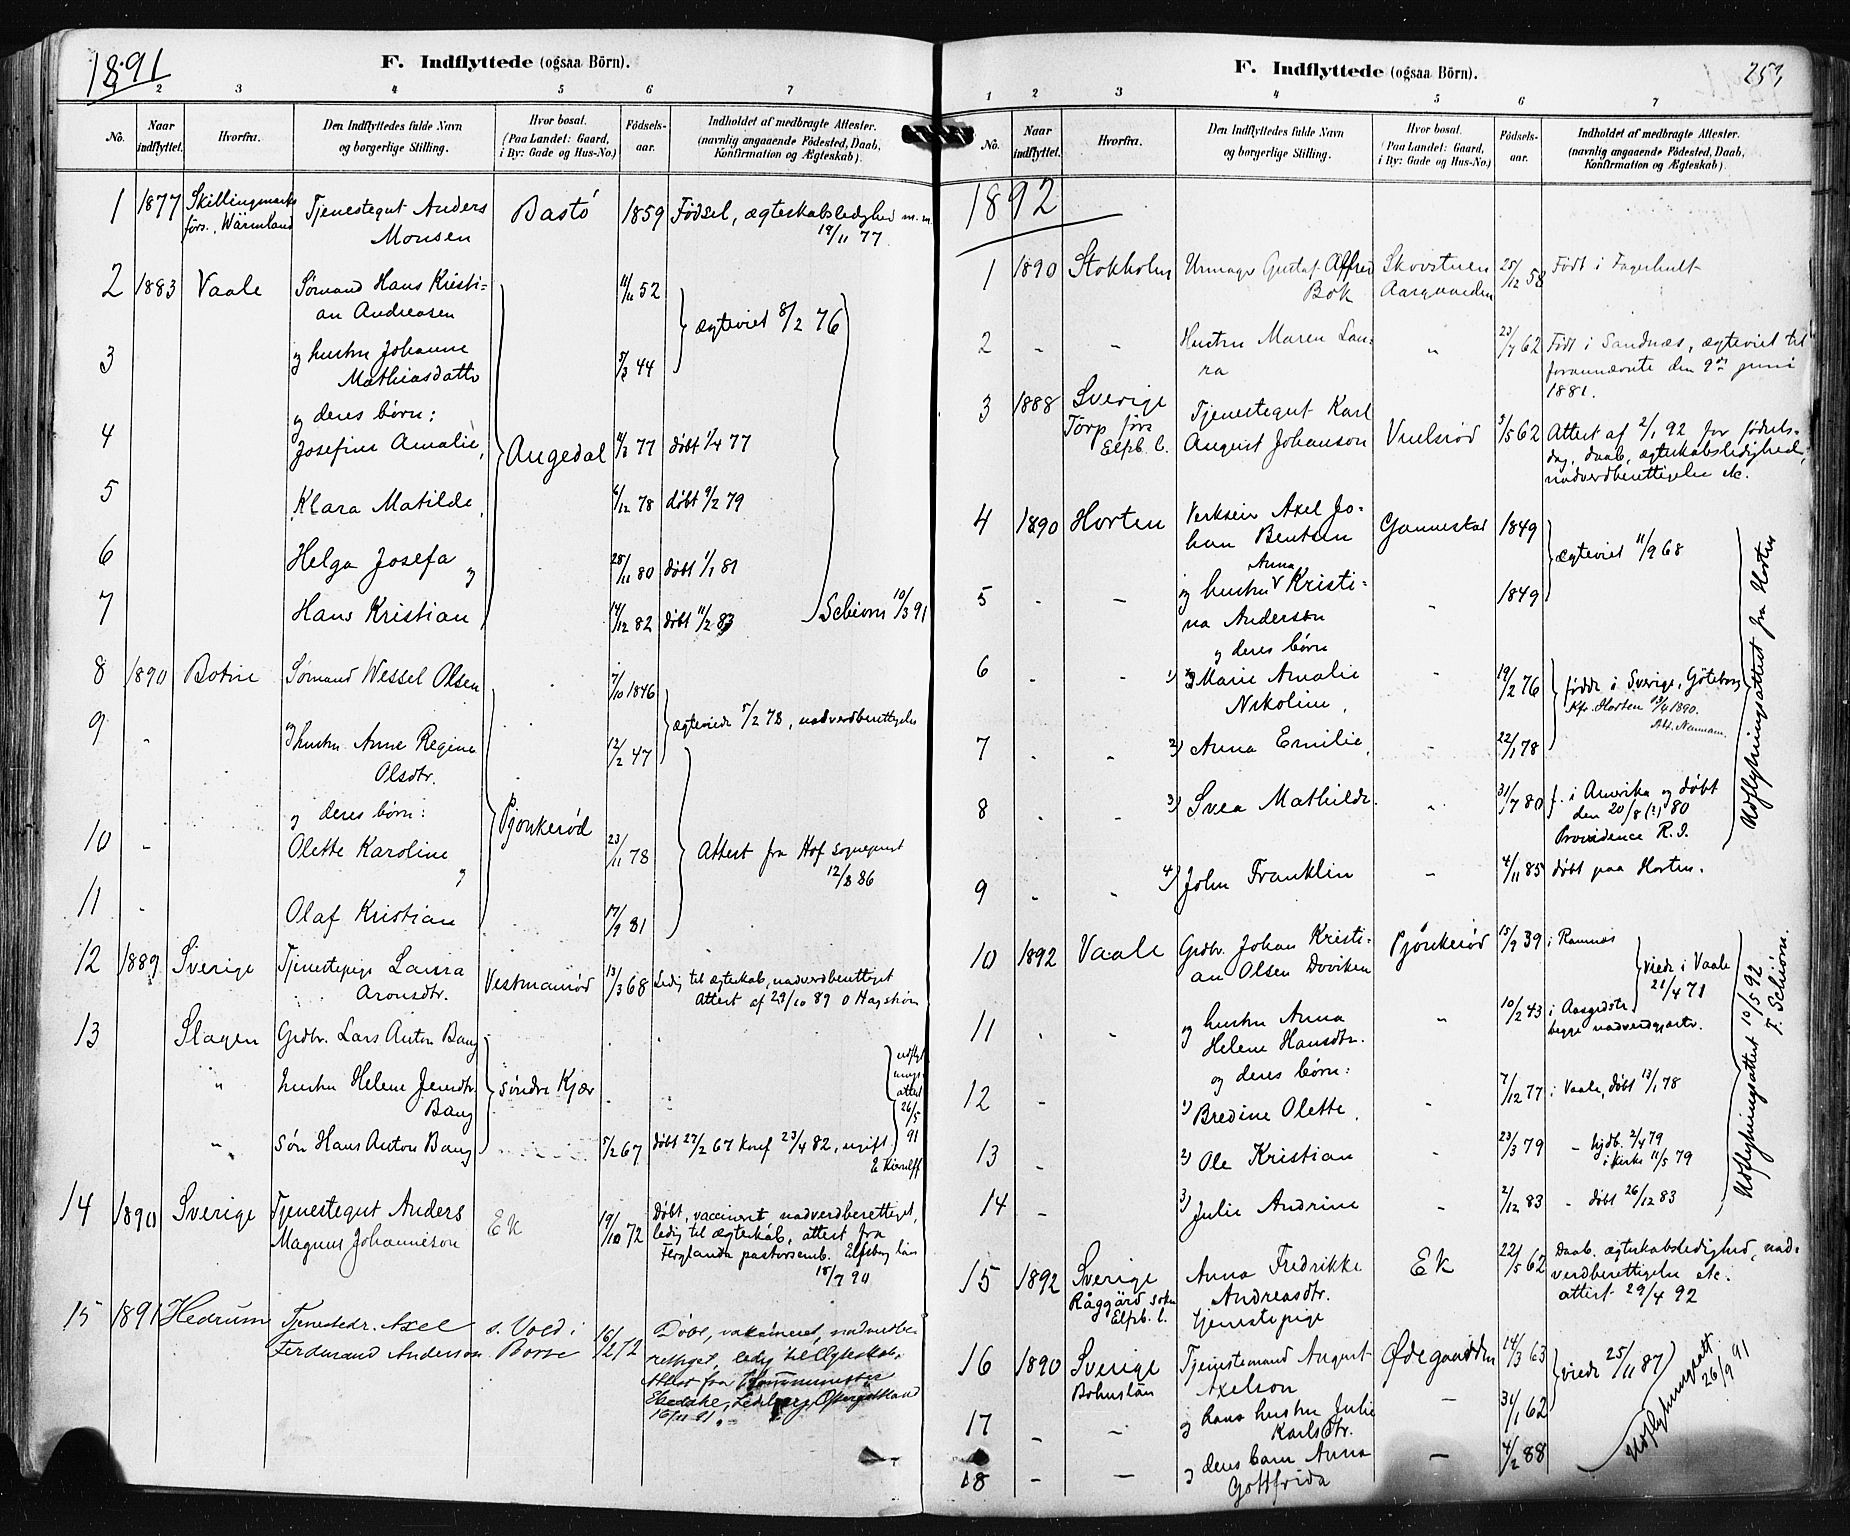 1891
F. Indflyttede (ogsaa Börn).
2 3 4 5 6 7
No.
Naar indflyttet.
Hvorfra.
Den Indflyttedes fulde Navn og borgerlige Stilling.
Hvor bosat. (Paa Landet: Gaard, i By: Gade og Hus-No.)
Födsels-aar.
Indholdet af medbragte Attester. (navnlig angaaende Födested, Daab, Konfirmation og Ægteskab).
1 1877 Skillingmarks Tjenestegut Anders Bastö 1859 Födsel, ægteskabsledighed m.m.
förs., Wärmland Monsen 19/11 77.
2 1883 Vaale Sömand Hans Kristi- 52
an Andreasen ægteviet 8/2 76
3 og hustru Johanne 44
Mathiasdatter
og deres börn:
4 Josefine Amalie, Augedal 77 döbt 1/4 77
5 Klara Matilde, 6/12 78 döbt 9/2 79
6 Helga Josefa og 28/11 80 döbt 1/1 81
7 Hans Kristian 14/12 82 döbt 11/2 83 Schiörn 10/3 91
8 1890 Botne Sömand Wessel Olsen 7/10 1846
ægteviede 5/2 78, nadverdberettigede
9 - og hustru Anne Regine 12/2 47
Olsdtr.
og deres börn: Pjonkeröd
10 - Olette Karoline og 23/11 78 Attest fra Hof sogneprest
12/8 86
11 - Olaf Kristian 17/9 81
12 1889 Sverige Tjenestepige Laura Vestmanröd 13/3 68 Ledig til ægteskab, nadverdberettiget
Aronsdtr. Attest af 23/10 89 O Hagström
13 Slagen Grdbr. Lars Anton Bang
" hustru Helene Jensdtr. söndre Kjær udflytningsattest 26/5 91
Bang
" sön Hans Anton Bang 5/2 67 döbt 27/2 67 konf 23/4 82, ugift
14 1890 Sverige Tjenestegut Anders Ek 19/10 72 Döbt, vaccineret, nadverdberettiget,
Magnus Johanneson ledig til ægteskab, attest fra
Ferglanda pastorsemb. Elfsborg län
18/7 90
15 1891 Hedrum Tjenestedr. Axel s. Vold i 16/12 72 Döbt, vaksineret, nadverdbe-
Ferdinand Anderson Borre rettiget, ledig til Ægteskab,
Attest fra Kommunister
Östergötland
16/11 91.
F. Indflyttede (ogsaa Börn).
253
1 2 3 4 5 6 7
No.
Naar indflyttet.
Hvorfra.
Den Indflyttedes fulde Navn og borgerlige Stilling.
Hvor bosat. (Paa Landet: Gaard, i By: Gade og Hus-No.)
Födsels-aar.
Indholdet af medbragte Attester. (navnlig angaaende Födested, Daab, Konfirmation og Ægteskab).
1892
1 1890 Stokholm Urmager Gustaf Alfred Skovstuen 25/12 58 Födt i Fagerhult
Bok Aasgaarden
2 - - Hustru Maren Lau- " 23/7 62 Födt i Sandnæs, ægteviet til
ra forannævnte den 9de juni
1881.
3 1888 Sverige Tjenestegut Karl
Törp förs August Johanson Vulsröd 3/5 62 Attest af 2/1 92 for födsels-
Elfsb. l. dag, daab, ægteskabsledighed,
nadverdberettigelse etc.
4 1890 Horten Verkseier Axel Jo- Gannestad 1849
han Bentsen ægteviet 11/9 68
Anna
5 - - og hustru V Kristi- " 1849
na Anderson
og deres börn
6 - 1) Marie Amalie - 19/2 76 födte i Sverige, Göteborg
Nikoline, Kfr. Horten 10/4 1890.
7 - - 2) Anna Emilie, - 22/1 78
8 - - 3) Svea Mathilde " 31/7 80 f. i Amerika og döbt
den 20/8 (?) 80
Providence R. I.
9 - - 4) John Franklin - 4/11 85 döbt paa Horten.
Udflytningsattest fra Horten
10 1892 Vaale Grdbr. Johan Kristi- Pjönkeröd 15/9 39 i Ramnæs
an Olsen Dviken viede i Vaale
21/4 71
11 - - og hustru Anna " 10/2 43 i Aasgrdstr.
Helene Hansdtr. begge nadverdgjester.
og deres börn:
12 - 1) Bredine Olette, - 7/12 77 i Vaale, döbt 13/1 78
13 - 2) Ole Kristian 23/3 79 - hjdb. 2/4 79
i kirke 11/5 79
14 - 3) Julie Andrine - 2/12 83 - döbt 26/12 83
Udflytningsattest 10/5 92
F. Schiörn.
15 1892 Sverige Anna Fredrikke Ek 22/5 62 Daab, ægteskabsledighed, nad-
Råggärd sokn Andreasdtr. verdberettigelse etc.
Elfsb. l. tjenestepige attest 29/4 92
16 1890 Sverige Tjenestemand August Ödegaarden 14/3 63 viede 25/11 87
Bohuslän Axelson
17 - - og hans hustru Julie - 31/1 62
Karlsdtr.
18 - - og deres barn Anna - 4/2 88
Gottfrida
Udflytningsatt. 26/9 91